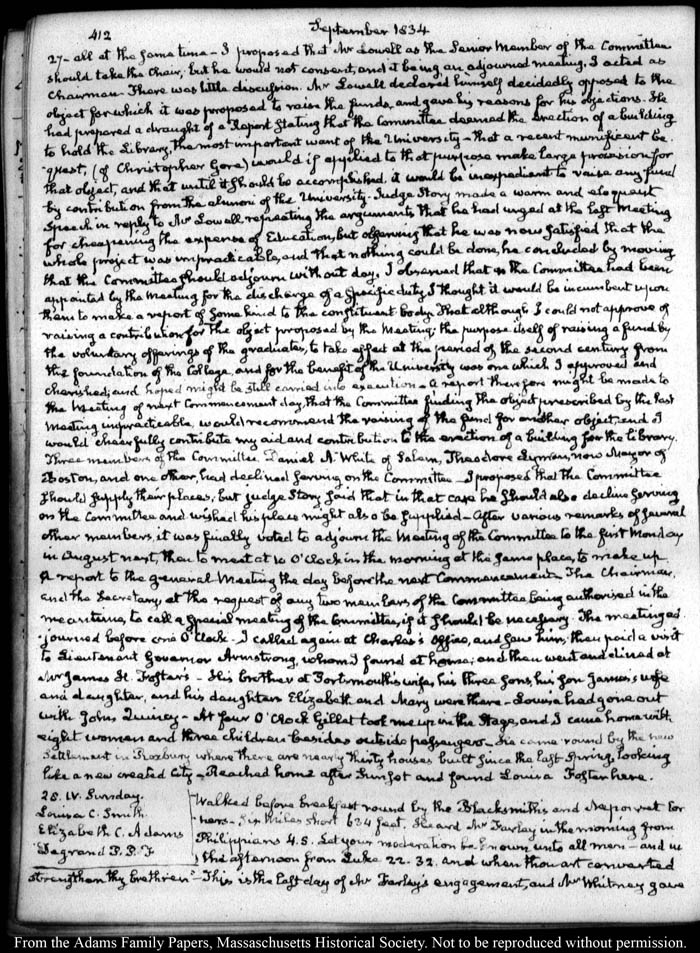 412
September 1834
27 - all at the same time - I proposed that Mr Lowell as the Senior Member of the Committee
should take the Chair, but he would not consent, and it being an adjourned meeting, I acted as
Chairman - There was little discussion. Mr Lowell declared himself decidedly opposed to the
object for which it was proposed to raise the funds, and gave his reasons for his objections. He
had prepared a draught of a Report stating that the Committee deemed the erection of a building
to hold the Library, the most important want of the University - that a recent munificent be-
quest, (of Christopher Gore) would if applied to that purpose make large provision for
that object, and that until it should be accomplished, it would be inexpedient to raise any fund
by contribution from the alumni of the University. Judge Story made a warm and eloquent
Speech in reply to Mr Lowell, repeating the arguments that he had urged at the last Meeting
for cheapening the expense of Education, but observing that he was now satisfied that the
whole project was impracticable, and that nothing could be done, he concluded by moving
that the Committee should adjourn without day. I observed that as the Committee had been
appointed by the Meeting for the discharge of a specific duty I thought it would be incumbent upon
them to make a report of some kind to the constituent body. That although I could not approve of
raising a contribution for the object proposed by the Meeting, the purpose itself of raising a fund by
the voluntary offerings of the graduates, to take effect at the period of the second century from
the foundation of the College, and for the benefit of the University was one which I approved and
cherished; and hoped might be still carried into execution - a report therefore might be made to
the Meeting of next Commencement day, that the Committee finding the object prescribed by the last
Meeting impracticable, would recommend the raising of the fund for another object, and I
would cheerfully contribute my aid and contribution to the erection of a building for the Library.
Three members of the Committee, Daniel A. White of Salem, Theodore Lyman, now Mayor of
Boston, and one other, had declined serving on the Committee - I proposed that the Committee
should supply their places, but Judge Story said that in that case he should also decline serving
on the Committee and wished his place might also be supplied - After various remarks of several
other members, it was finally voted to adjourn the Meeting of the Committee to the first Monday
in August next, then to meet at 10 O'Clock in the morning at the same place, to make up
a report to the general Meeting the day before the next Commencement. The Chairman,
and the Secretary, at the request of any two members of the Committee being authorised in the
meantime, to call a special meeting of the Committee, if it should be necessary. The meeting ad-
journed before one O'Clock - I called again at Charles's Office, and saw him; then paid a visit
to Lieutenant Governor Armstrong, whom I found at home; and then went and dined at
Mr James H. Foster's - His brother at Portsmouth's wife, his three sons, his son James's wife
and daughter, and his daughters Elizabeth and Mary were there - Louisa had gone out
with John Quincy - At four O'Clock Gillet took me up in the Stage, and I came home with
eight women and three children besides outside passengers - We came round by the new
Settlement in Roxbury where there are nearly thirty houses built since the last Spring, looking
like a new created City - Reached home after Sunset and found Louisa Foster here.
28. IV. Sunday.
Louisa C. Smith
Elizabeth C. Adams
Degrand P. P. F
Walked before breakfast round by the Blacksmiths and Neponset Cor-
ners - Six Miles short 634 feet. Heard Mr Farley in the morning from
Philippians 4.5. Let your moderation be known unto all men - and in
the afternoon from Luke 22.32. and when thou art converted
strengthen thy brethren - This is the last day of Mr Farley's engagement, and Mr Whitney gave
From the Adams Family Papers, Massachusetts Historical Society. Not to be reproduced without permission.